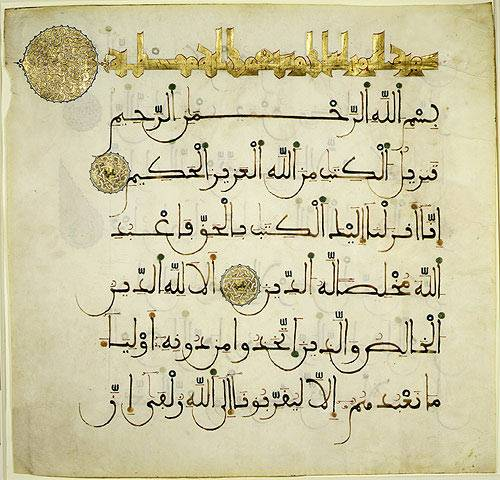 بِسْمِ اللَّهِ الرَّحْمَنِ الرَّحِيمِ
تَنزِيلُ الْكِتَبِ مِنَ اللَّهِ الْعَزِيزِ الْحَكِيمِ
إِنَّا أَنزَلْنَا إِلَيْكَ الْكِتَبَ بِالْحَقِّ فَاعْبُدِ
اللَّهَ مُخْلِصًا لَّهُ الدِّينَ أَلَا لِلَّهِ الدِّينُ
الْخَالِصُ وَالَّذِينَ اتَّخَذُوا مِن دُونِهِ أَوْلِيَاءَ
مَا نَعْبُدُهُمْ إِلَّا لِيُقَرِّبُونَا إِلَى اللَّهِ زُلْفَى إِنَّ